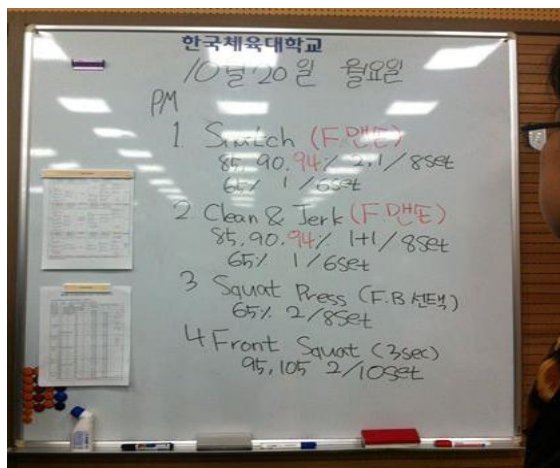 한국체육대학교
10월 20일 월요일
PM
1 Snatch (F.맨몸)
85, 90, 94% 2,1/8set
65% 1/6set
2 Clean & Jerk (F.맨몸)
85, 90, 94% 1+1/8set
65% 1/6set
3 Squat Press (F.B 선택)
65% 2/8set
4 Front Squat (3sec)
95, 105 2/10set